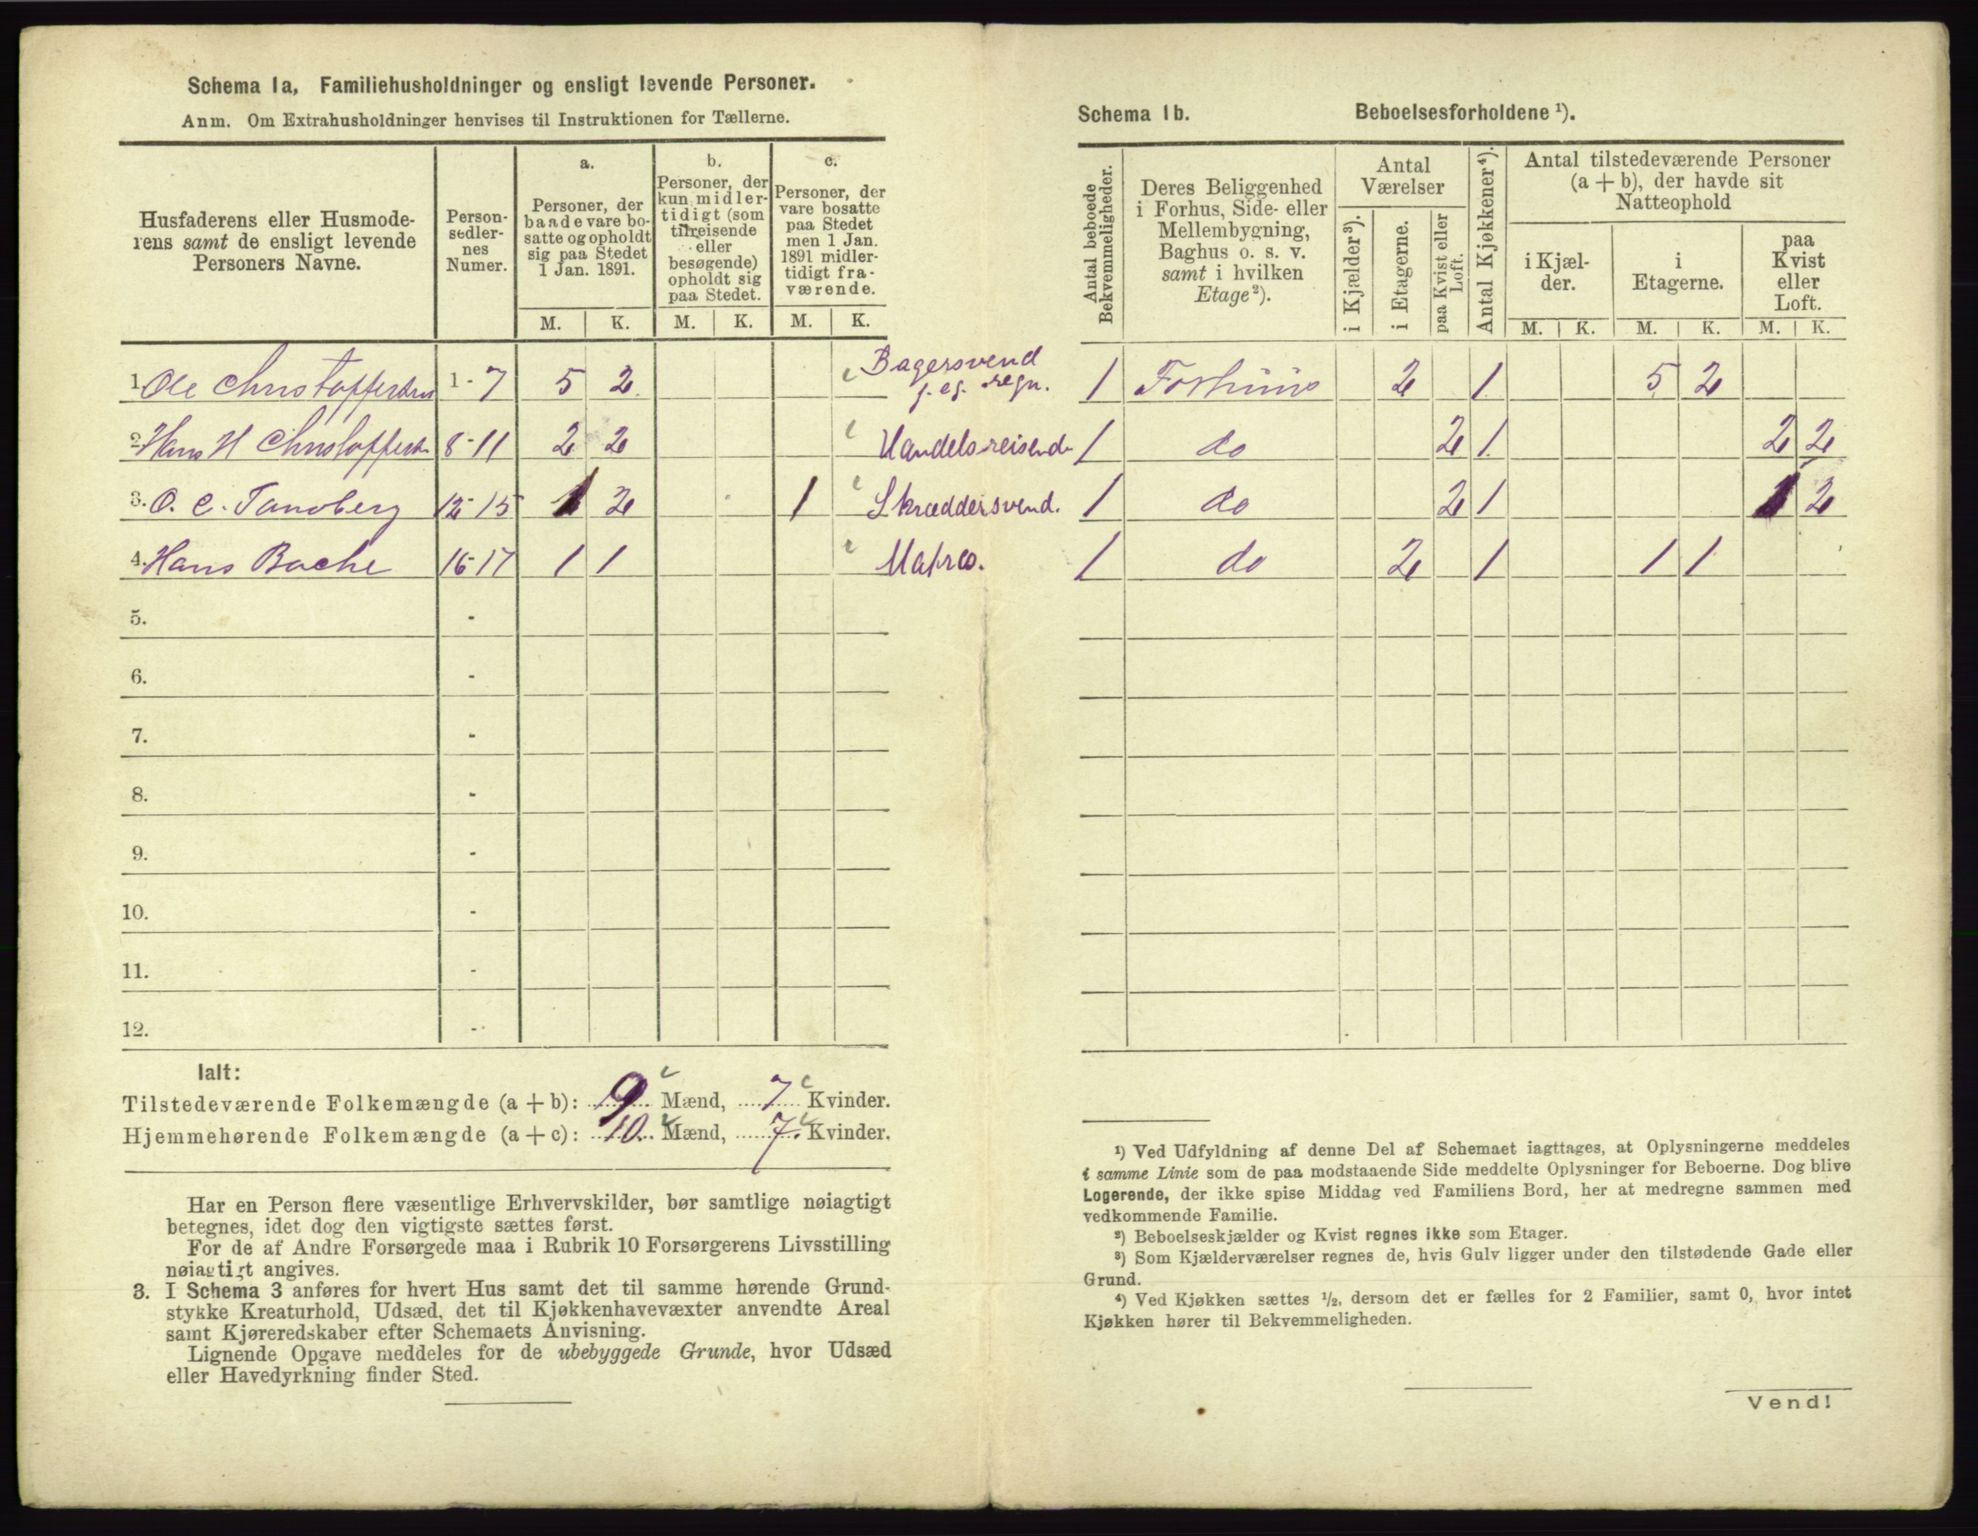 Schema 1a, Familiehusholdninger og ensligt levende Personer.
Anm. Om Extrahusholdninger henvises til Instruktionen for Tællerne.
Husfaderens eller Husmoderens samt de ensligt levende Personers Navne.
Personsedlernes Numer.
a.
Personer, der baade vare bosatte og opholdt sig paa Stedet 1 Jan. 1891.
b.
Personer, der kun midlertidigt (som tilreisende eller besøgende) opholdt sig paa Stedet.
c.
Personer, der vare bosatte paa Stedet men 1 Jan. 1891 midlertidigt fraværende.
M. K. M. K. M. K.
1. Ole Christoffersen 1 - 7 5 2 Bagersvend f. eg. regn.
2. Hans H Christoffersen 8 - 11 2 2 Handelsreisende
3. O. C. Tandberg 12 - 15 1 2 1 Skræddersvend.
4. Hans Bache 16 - 17 1 1 Matros.
5. -
6. -
7. -
8. -
9. -
10. -
11. -
12. -
Ialt:
Tilstedeværende Folkemængde (a + b): 9 Mænd, 7 Kvinder.
Hjemmehørende Folkemængde (a + c): 10 Mænd, 7 Kvinder.
Har en Person flere væsentlige Erhvervskilder, bør samtlige nøiagtigt
betegnes, idet dog den vigtigste sættes først.
For de af Andre Forsørgede maa i Rubrik 10 Forsørgerens Livsstilling
nøiagtigt angives.
3. I Schema 3 anføres for hvert Hus samt det til samme hørende Grund-
stykke Kreaturhold, Udsæd, det til Kjøkkenhavevæxter anvendte Areal
samt Kjøreredskaber efter Schemaets Anvisning.
Lignende Opgave meddeles for de ubebyggede Grunde, hvor Udsæd
eller Havedyrkning finder Sted.
Schema 1b. Beboelsesforholdene ¹).
Antal beboede Bekvemmeligheder.
Deres Beliggenhed i Forhus, Side- eller Mellembygning, Baghus o. s. v. samt i hvilken Etage ²).
Antal Værelser
i Kjælder ³).
i Etagerne.
paa Kvist eller Loft.
Antal Kjøkkener ⁴).
Antal tilstedeværende Personer (a + b), der havde sit Natteophold
i Kjælder.
i Etagerne.
paa Kvist eller Loft.
M. K. M. K. M. K.
1 Forhuus 2 1 5 2
1 do 2 1 2 2
1 do 2 1 1 2
1 do 2 1 1 1
¹) Ved Udfyldning af denne Del af Schemaet iagttages, at Oplysningerne meddeles
i samme Linie som de paa modstaaende Side meddelte Oplysninger for Beboerne. Dog blive
Logerende, der ikke spise Middag ved Familiens Bord, her at medregne sammen med
vedkommende Familie.
²) Beboelseskjælder og Kvist regnes ikke som Etager.
³) Som Kjælderværelser regnes de, hvis Gulv ligger under den tilstødende Gade eller
Grund.
⁴) Ved Kjøkken sættes ½, dersom det er fælles for 2 Familier, samt 0, hvor intet
Kjøkken hører til Bekvemmeligheden.
Vend!